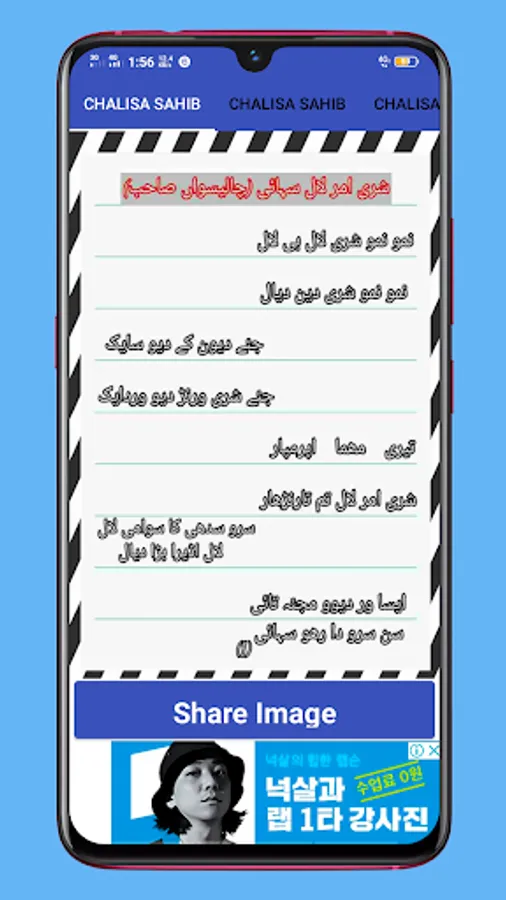 1:56
CHALISA SAHIB CHALISA SAHIB CHALISA
شری امر لال سہائی (چالیسواں صاحب)
نمو نمو شری لال بی لال
نمو نمو شری دین دیال
جئے دیون کے دیو سایک
جئے شری ورنڑ دیو وردایک
تیری مھما اپرمپار
شری امر لال تم تارنڑھار
سرو سدھی کا سوامی لال
لال اڈیرا بڑا دیال
ایسا ور دیوو مجنہ تائی
سن سرو دا رھو سہائی
Share Image
넉살의 힙한 랩슨
넉살과
수업료 0원
랩 1타 강사진